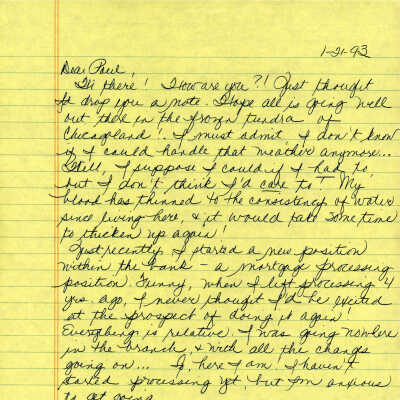 1-21-93
Dear Paul,
Hi there! How are you?! Just thought
I'd drop you a note. Hope all is going well
out there in the frozn tundra of
Chicagoland! I must admit I don't know
if I could handle that weather anymore...
Well, I suppose I could if I had to,
but I don't think I'd care to! My
blood has thinned to the consistency of water
since living here, & it would take some time
to thicken up again!
Just recently, I started a new position
within the bank - a mortgage processing
position. Funny, when I left processing 4
yrs. ago, I never thought I'd be excited
at the prospect of doing it again!
Everything is relative. I was going nowhere
in the branch, & with all the changes
going on... here I am! I haven't
started processing yet, but I'm anxious
to get going